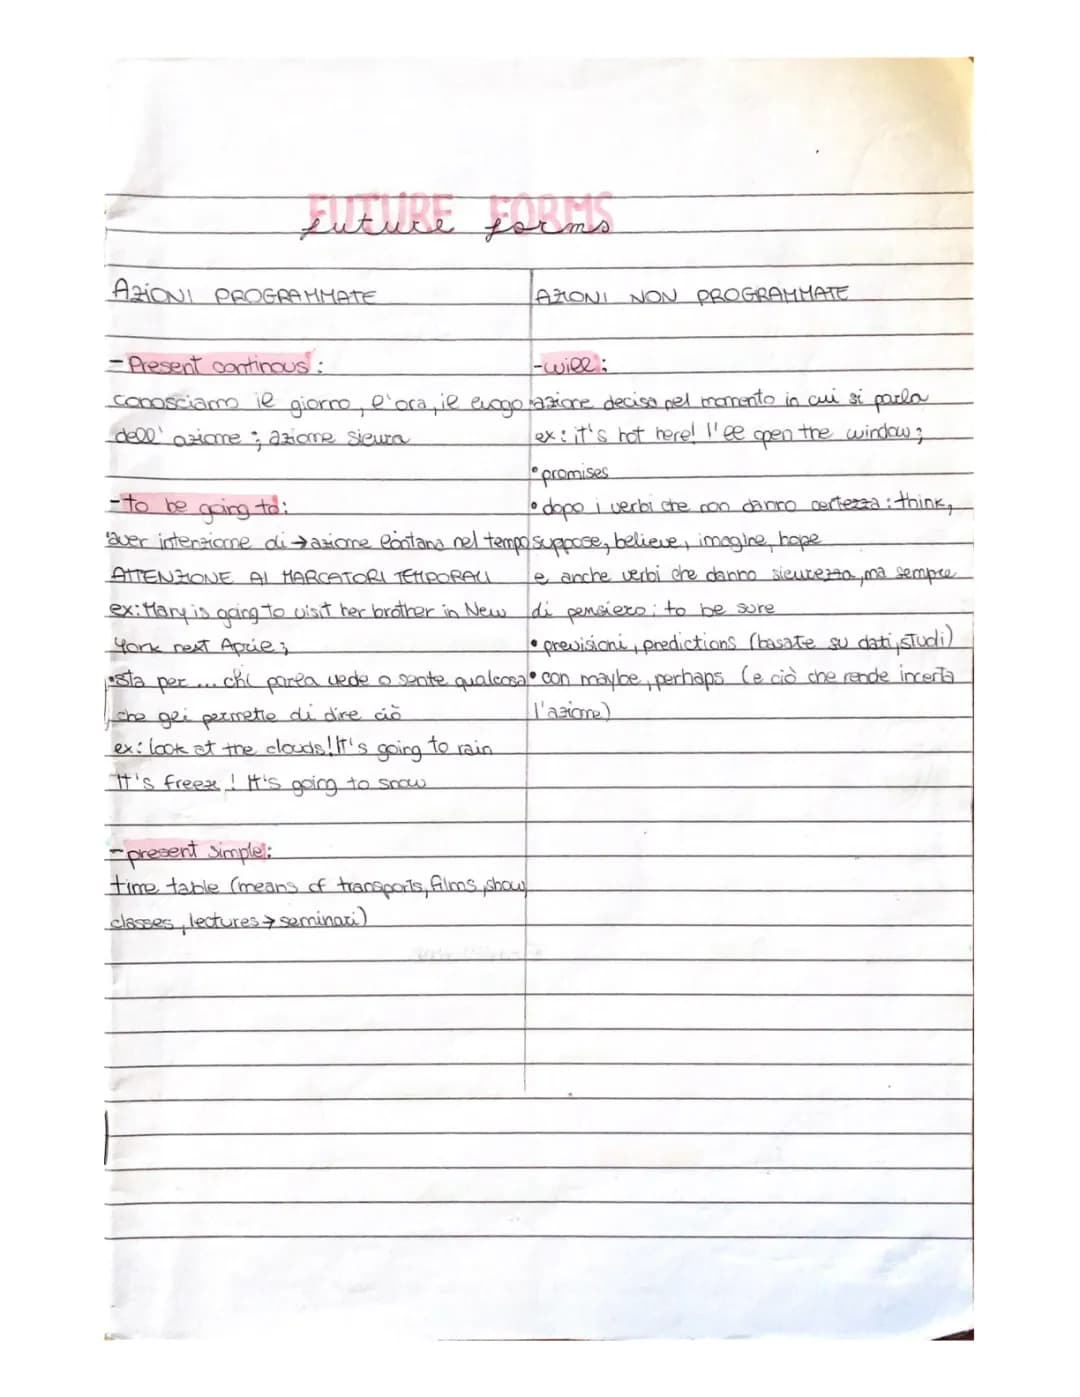 FUTURE FORMS
future forms
AZIONI PROGRAMMATE
-Present continous:
conosciamo il giorno, l'ora, il luogo
dell' azione; azione sicura
-to be going to:
aver intenzione di → azione lontana nel tempo
ATTENZIONE AI MARCATORI TEMPORALI
ex: Mary is going to visit her brother in New
York next April;
•sta per ... chi parla vede o sente qualcosa
che gli permette di dire ciò
ex: look at the clouds! It's going to rain
It's freez ! It's going to snow
-present simple:
time table (means of transports, films, show,
classes, lectures → seminari)
AZIONI NON PROGRAMMATE
-will:
azione decisa nel momento in cui si parla
ex: it's hot here! I'll open the window;
• promises
• dopo i verbi che non danno certezza: think,
suppose, believe, imagine, hope
e anche verbi che danno sicurezza, ma sempre
di pensiero: to be sure
• previsioni, predictions (basate su dati, studi)
• con maybe, perhaps (e ciò che rende incerta
l'azione)